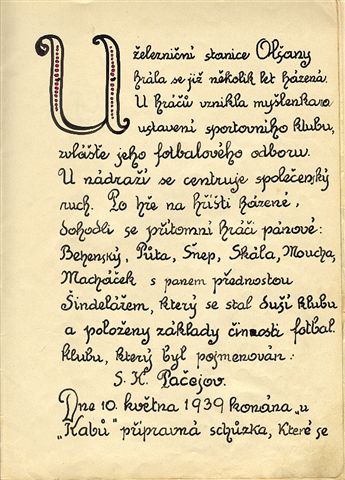 U železniční stanice Olšany
hrála se již několik let házená.
U hráčů vznikla myšlenka o
ustavení sportovního klubu,
zvláště jeho fotbalového odboru.
U nádraží se centruje společenský
ruch. Po hře na hřišti házené,
dohodli se přítomní hráči pánové:
Behenský, Půta, Šnep, Skála, Moucha,
Macháček s panem přednostou
Šindelářem, který se stal duší klubu
a položeny základy činnosti fotbal.
klubu, který byl pojmenován:
S. K. Pačejov.
Dne 10. května 1939 konána „u
Kabů" přípravná schůzka, které se